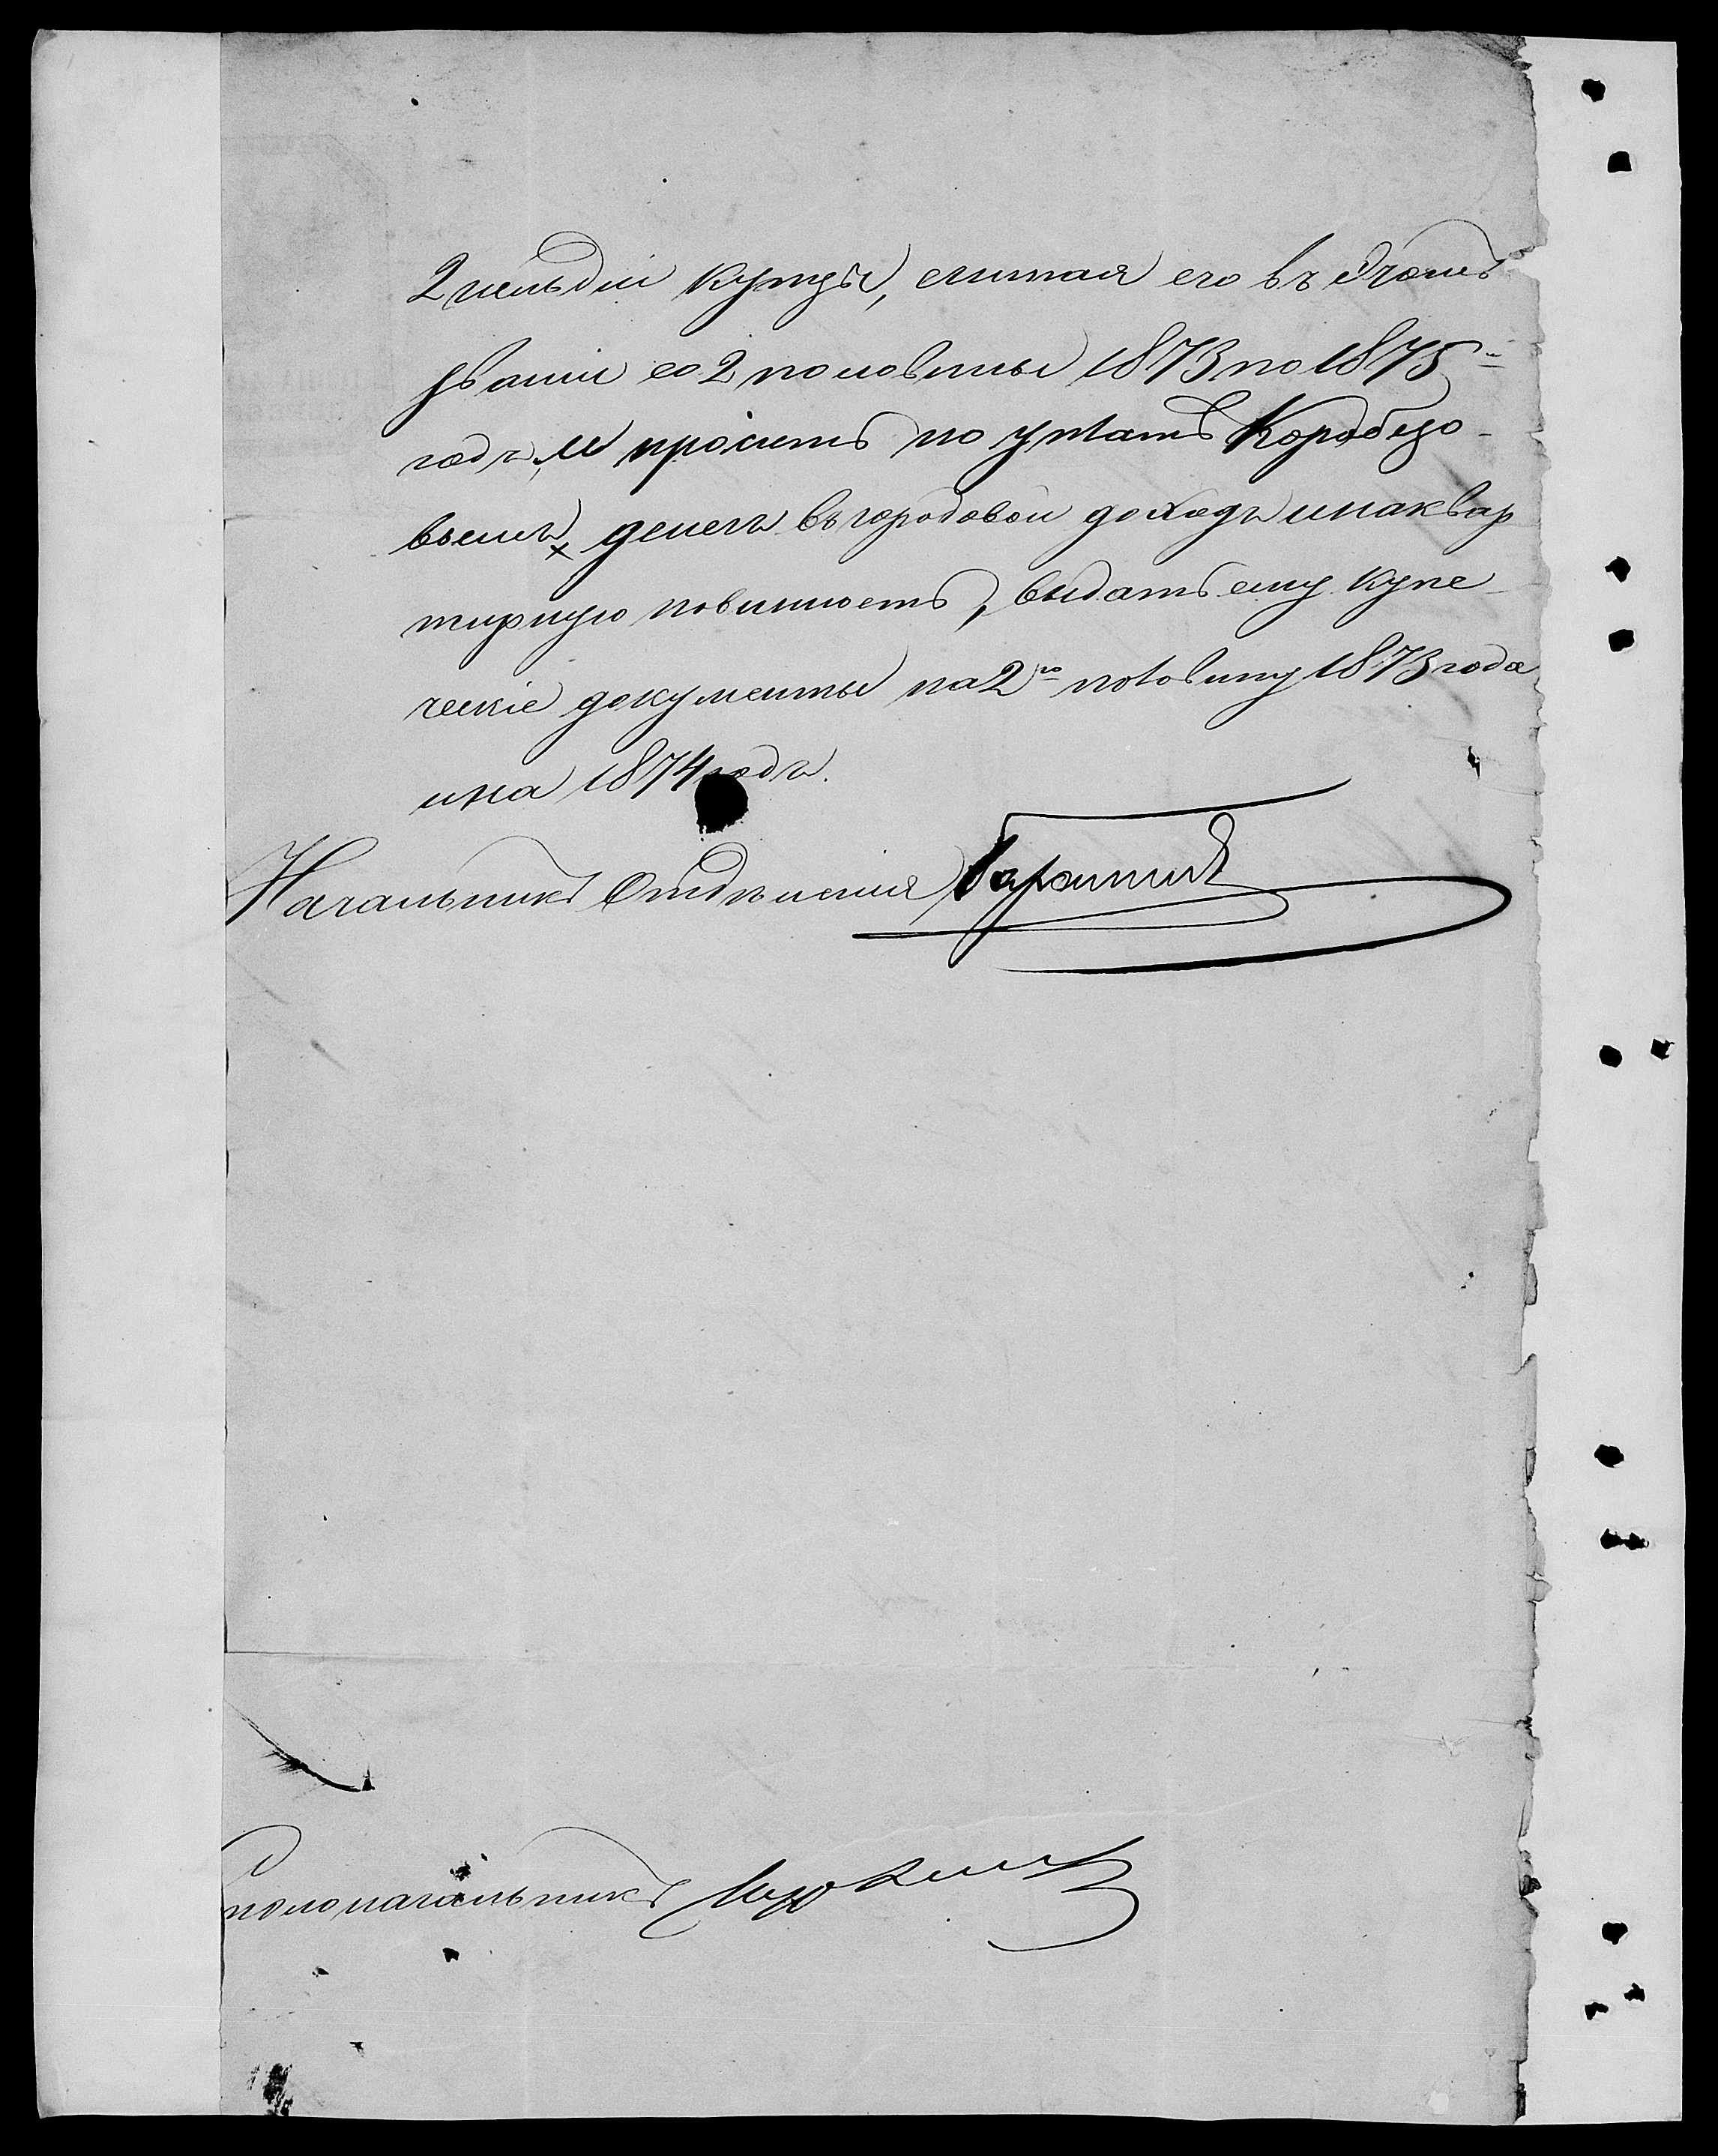 2 гильдіи купцы, считая его въ этомъ
званіи со 2 половины 1873 по 1875-й
годъ, и проситъ по уплатѣ Коробцо-
вымъ × денегъ въ городовой доходъ и на квар
тирную повинность, выдать ему купе-
ческіе документы на 2ю половину 1873 года
и на 1874 годъ.
Начальникъ Отдѣленія
столоначальникъ